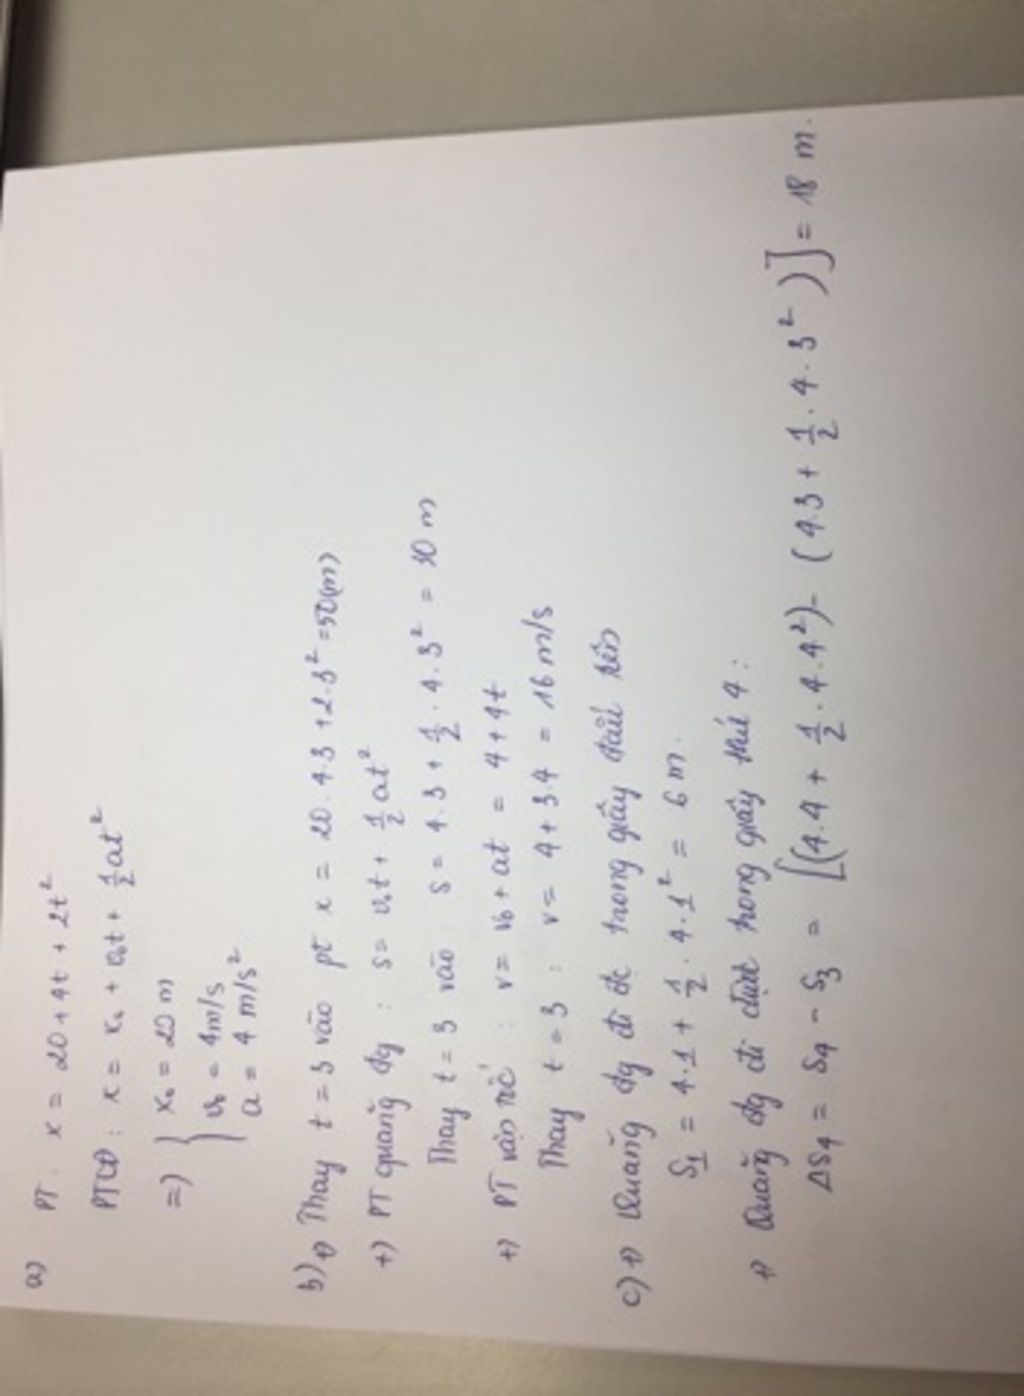 a) PT: x = 20 + 4t + 2t²
PTCĐ: x = x₀ + v₀t + ½at²
=) { x₀ = 20 m
v₀ = 4m/s
a = 4 m/s²
b) +) Thay t = 3 vào pt x = 20.4.3 + 2.3² = 50(m)
+) PT quãng đg: s = v₀t + ½ at²
Thay t = 3 vào s = 4.3 + ½ . 4.3² = 30 m
+) PT vận tốc: v = v₀ + at = 4 + 4t
Thay t = 3 : v = 4 + 3.4 = 16 m/s
c) +) Quãng đg đi đc trong giây đầu tiên
S₁ = 4.1 + ½ . 4.1² = 6 m.
+) Quãng đg đi được trong giây thứ 4:
ΔS₄ = S₄ - S₃ = [(4.4 + ½ . 4.4²) - (4.3 + ½ . 4.3²)] = 18 m.